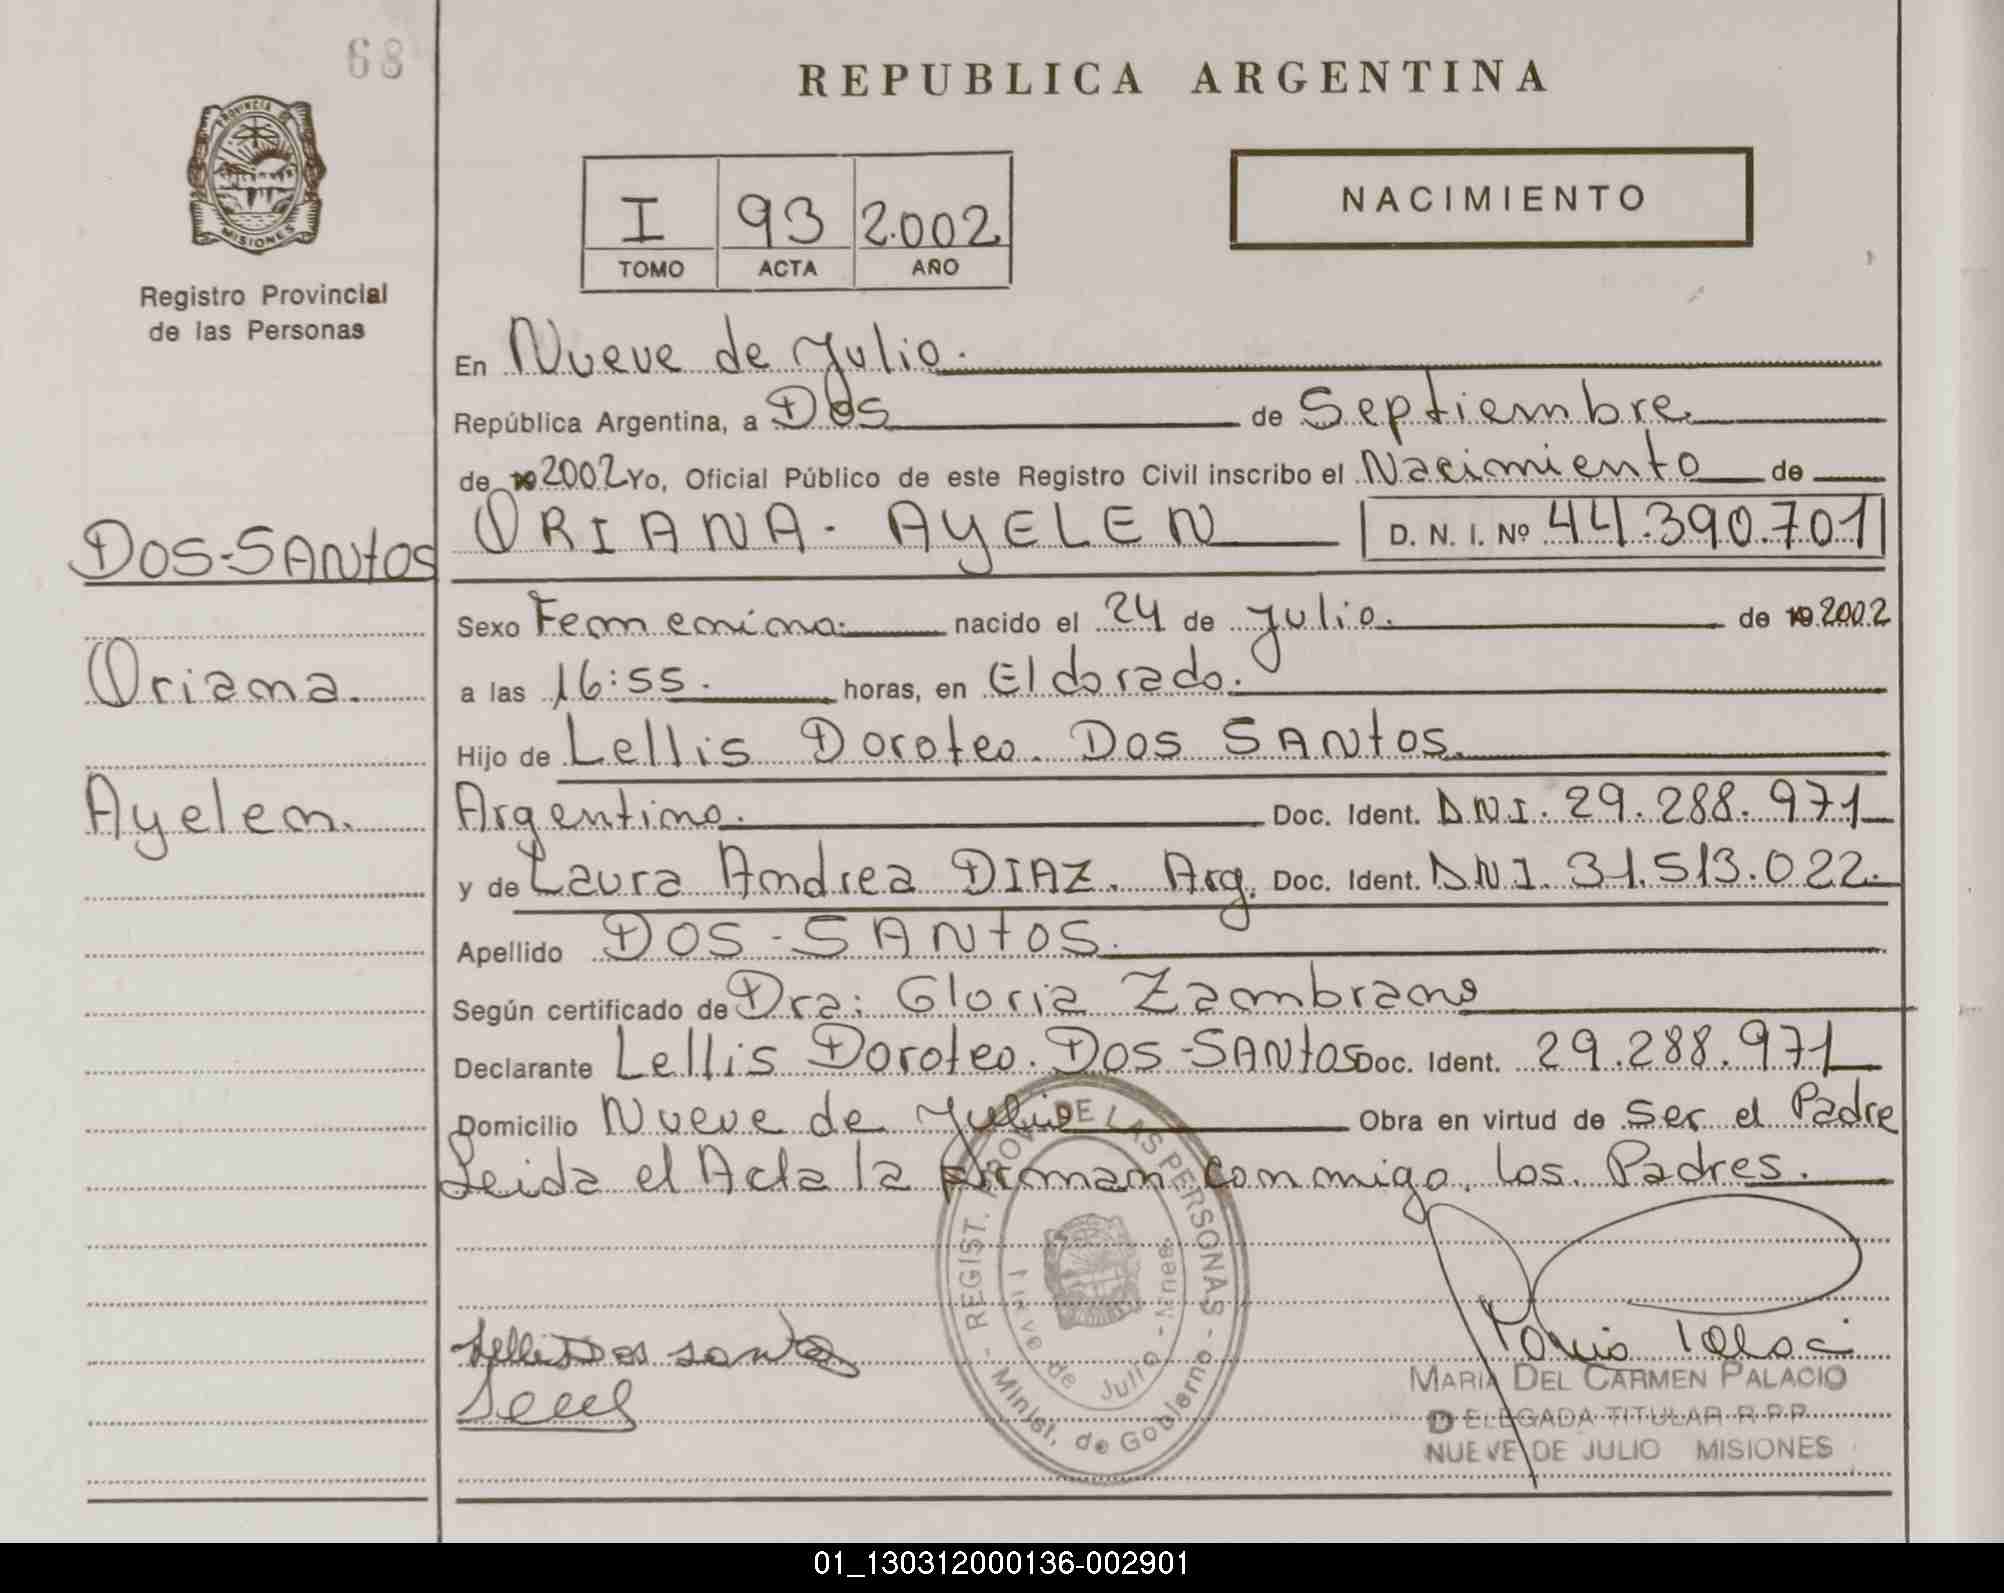 68
REPUBLICA ARGENTINA
PROVINCIA
MISIONES
Registro Provincial
de las Personas
I 93 2.002
TOMO ACTA AÑO
NACIMIENTO
En Nueve de Julio.
República Argentina, a Dos de Septiembre
de 19 2002 Yo, Oficial Público de este Registro Civil inscribo el Nacimiento de
DOS-SANtOS ORIANA- AYELEN D. N. I. Nº 44.390.701
Sexo Femenino. nacido el 24 de Julio. de 19 2002
Oriana. a las 16:55. horas, en Eldorado.
Hijo de Lellis Doroteo. Dos SANtOS.
Ayelen. Argentino. Doc. Ident. DNI. 29.288.971
y de Laura Andrea DIAZ. Arg. Doc. Ident. DNI. 31.513.022.
Apellido DOS-SANtOS.
Según certificado de Dra: Gloria Zambrano
Declarante Lellis Doroteo. Dos-SANtOS Doc. Ident. 29.288.971
Domicilio Nueve de Julio Obra en virtud de Ser el Padre
Leida el Acta la firman conmigo, los Padres.
REGIST. PROV. DE LAS PERSONAS
Nueve de Julio - Mnes.
- Minist. de Gobierno -
Lellis Dos santos
MARIA DEL CARMEN PALACIO
DELEGADA TITULAR R.P.P.
NUEVE DE JULIO MISIONES
01_130312000136-002901